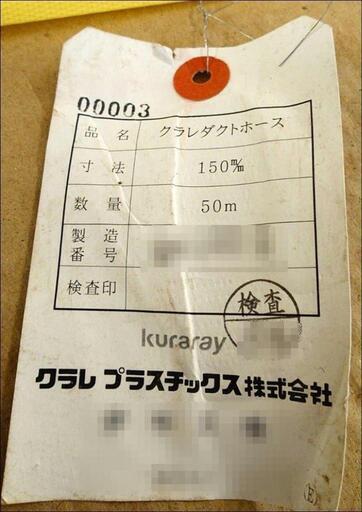 00003
品名 クラレダクトホース
寸法 150㎜
数量 50m
製造番号
検査印
検査
kuraray
クラレ プラスチックス株式会社
(E)